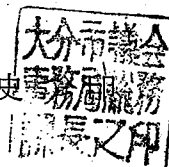 大分市議会
史 事務局総務
課長之印